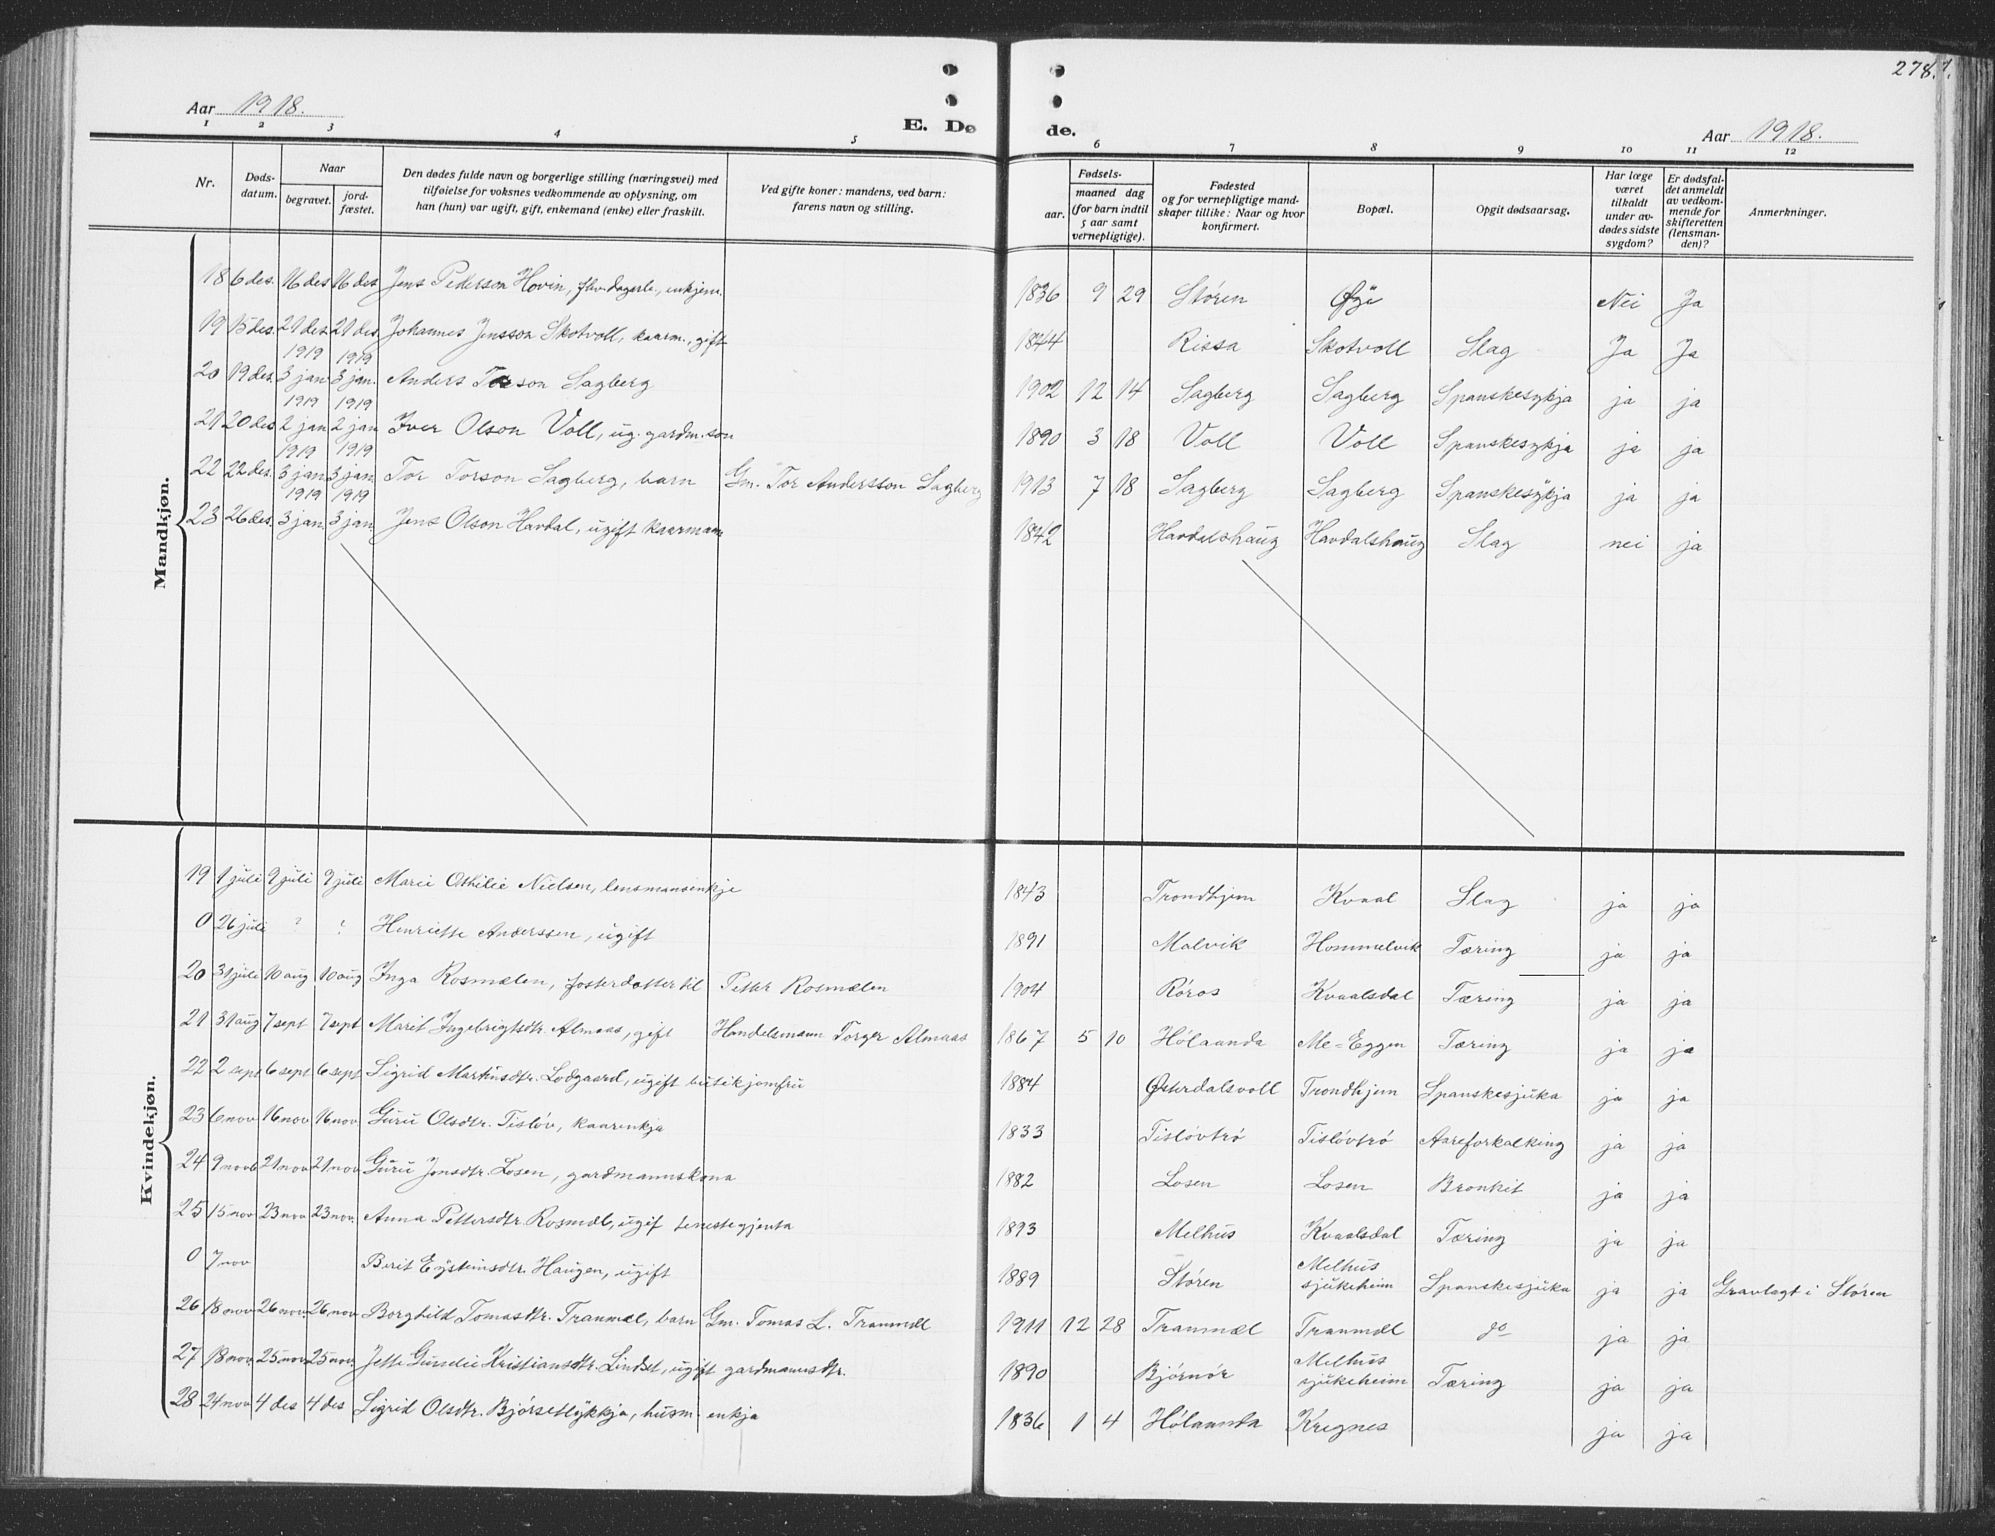 278.
Aar 1918.
E. Dø de.
Aar 1918.
1 2 3 4 5 6 7 8 9 10 11 12
Nr. Dødsdatum. Naar begravet. jordfæstet. Den dødes fulde navn og borgerlige stilling (næringsvei) med tilføielse for voksnes vedkommende av oplysning, om han (hun) var ugift, gift, enkemand (enke) eller fraskilt. Ved gifte koner: mandens, ved barn: farens navn og stilling. Fødsels- aar. maaned dag (for barn indtil 5 aar samt vernepligtige). Fødested og for vernepligtige mandskaper tillike: Naar og hvor konfirmert. Bopæl. Opgit dødsaarsag. Har læge været tilkaldt under avdødes sidste sygdom? Er dødsfaldet anmeldt av vedkommende for skifteretten (lensmanden)? Anmerkninger.
Mandkjøn.
18 6 des. 16 des 16 des Jens Pederson Hovin, fhv. dagarb., enkjem. 1836 9 29 Støren Øye Nei Ja
19 15 des. 21 des. 21 des. Johannes Jensson Skotvoll, kaarm., gift 1844 Rissa Skotvoll Slag Ja Ja
1919 1919
20 19 des. 3 jan 3 jan. Anders Torson Sagberg 1902 12 14 Sagberg Sagberg Spanskesykja ja ja
1919 1919
21 20 des 2 jan 2 jan Iver Olson Voll, ug. gardm. son 1890 3 18 Voll Voll Spanskesykja ja ja
1919 1919
22 22 des. 3 jan 3 jan Tor Torson Sagberg, barn Gm. Tor Andersson Sagberg 1913 7 18 Sagberg Sagberg Spanskesykja ja ja
1919 1919
23 26 des. 3 jan. 3 jan. Jens Olson Havdal, ugift kaarmann 1842 Havdalshaug Havdalshaug Slag nei ja
Kvindekjøn.
19 1 juli 9 juli 9 juli Marie Othilie Nielsen, lensmansenkje 1843 Trondhjem Kvaal Slag ja ja
0 26 juli ? ? Henriette Anderssen, ugift 1891 Malvik Hommelvik Tæring ja ja
20 31 juli 10 aug 10 aug Inga Rosmælen, fosterdotter til Petter Rosmælen 1904 Røros Kvaalsdal Tæring ja ja
21 31 aug 7 sept 7 sept Marit Ingebrigtsdtr. Almaas, gift Handelsmann Torger Almaas 1867 5 10 Hølaanda Me-Eggen Tæring ja ja
22 2 sept 6 sept 6 sept Sigrid Marthisdtr. Lodgaard, ugift butikjomfru 1884 Østerdalsvoll Trondhjem Spanskesjuka ja ja
23 6 nov 16 nov 16 nov. Guru Olsdtr. Tisløv, kaarenkja 1833 Tisløvtrø Tisløvtrø Aareforkalking ja ja
24 9 nov 21 nov 21 nov Guru Jonsdtr. Losen, gardmannskona 1882 Losen Losen Bronkit ja ja
25 15 nov 23 nov 23 nov. Anna Pettersdtr. Rosmæl, ugif tenestegjenta 1893 Melhus Kvaalsdal Tæring ja ja
0 7 nov Berit Eysteinsdtr. Haugen, ugift 1889 Støren Melhus sjukeheim Spanskesjuka ja ja Gravlagt i Støren
26 18 nov 26 nov. 26 nov. Borghild Tomasdtr. Tranmæl, barn Gm. Tomas L. Tranmæl 1911 12 28 Tranmæl Tranmæl do ja ja
27 18 nov. 25 nov 25 nov. Kristiansdtr. Lindset, ugift gardmannsdtr. 1890 Bjørnør Melhus sjukeheim Tæring ja ja
28 24 nov 4 des 4 des Sigrid Olsdtr. Bjørsetlykkja, husm. enkja 1836 1 4 Hølaanda Kregnes ja ja